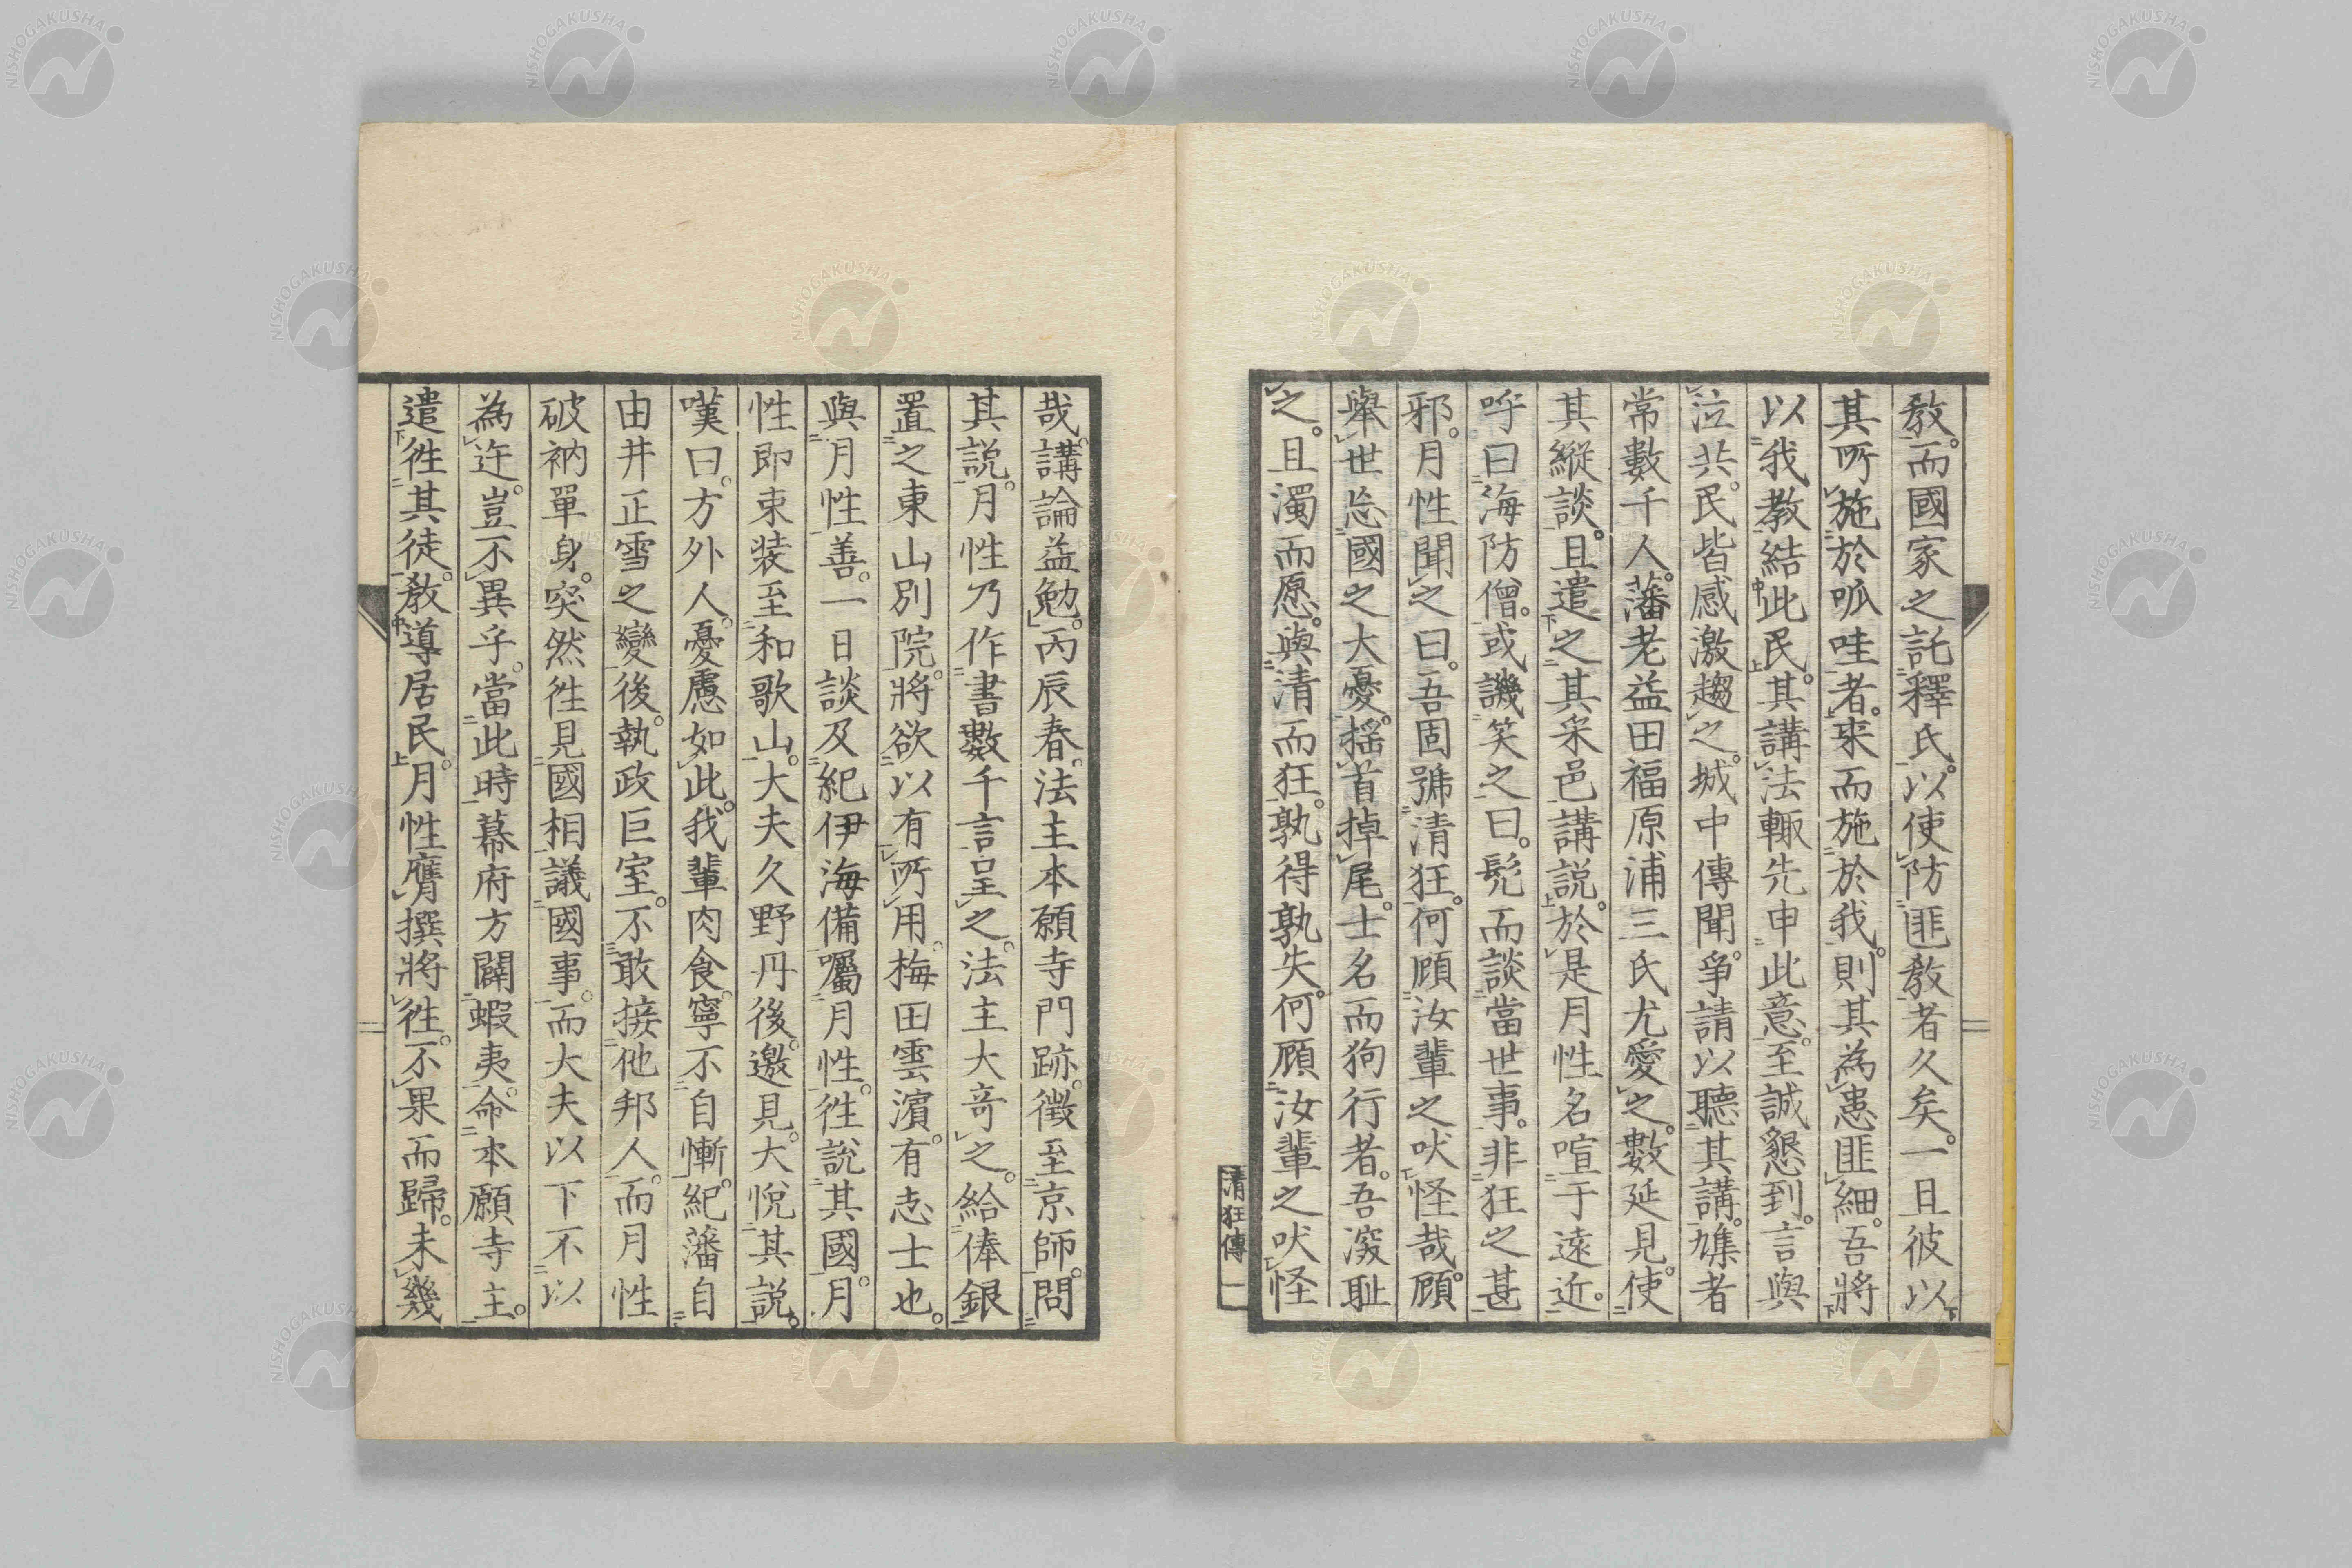 教。而國家之託釋氏。以使防匪教者久矣。一旦彼以
其所施於呱哇者。來而施於我。則其為患匪細。吾將
以我教結此民。其講法輙先申此意。至誠懇到。言與
泣共。民皆感激趨之。城中傳聞。爭請以聽其講。麕者
常數千人。藩老益田福原浦三氏尤愛之。數延見。使
其縱談。且遣之其采邑講說。於是月性名喧于遠近。
呼曰海防僧。或譏笑之曰。髠而談當世事。非狂之甚
邪。月性聞之曰。吾固號清狂。何顧汝輩之吠怪哉。顧
擧世忘國之大憂。搖首掉尾。士名而狗行者。吾深耻
之。且濁而愿。與清而狂。孰得孰失。何顧汝輩之吠怪
清狂傳 一
哉。講論益勉。丙辰春。法主本願寺門跡。徵至京師。問
其說。月性乃作書數千言呈之。法主大奇之。給俸銀
置之東山別院。將欲以有所用。梅田雲濵有志士也。
與月性善。一日談及紀伊海備囑月性。徃說其國。月
性即束裝至和歌山。大夫久野丹後。邀見。大悅其說。
嘆曰。方外人。憂慮如此。我輩肉食。寧不自慚。紀藩自
由井正雪之變後。執政巨室。不敢接他邦人。而月性
破衲單身。突然徃見國相議國事。而大夫以下不以
為迕。豈不異乎。當此時幕府方闢蝦夷。命本願寺主。
遣徃其徒。教導居民。月性膺撰將徃。不果而歸。未幾
NISHOGAKUSHA